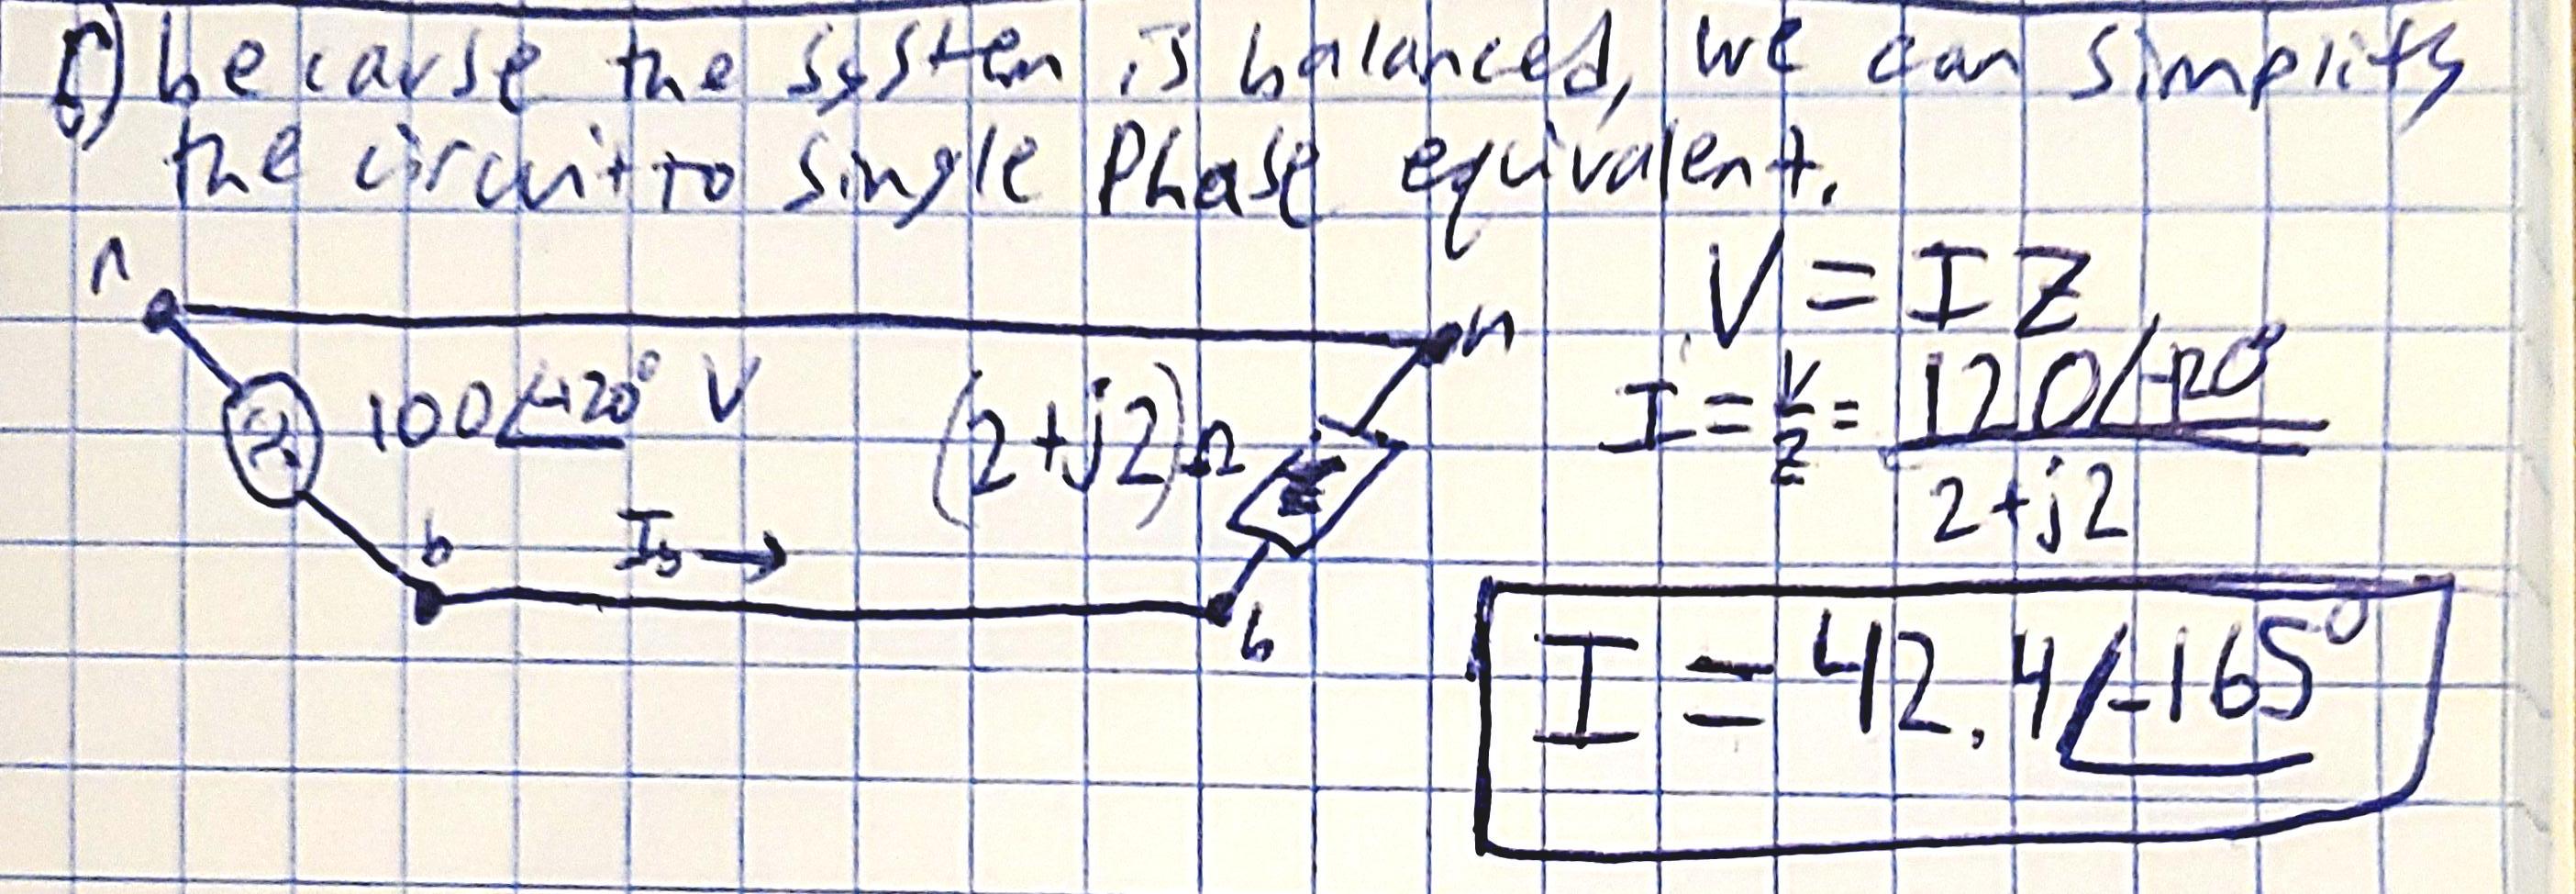 f) because the system is balanced, we can simplify
the circuit to single Phase equivalent.
n
n
V = IZ
100∠-120° V
(2+j2)Ω
I = V/Z = 120∠-120° / 2+j2
b
I_b →
b
I = 42.4∠-165°